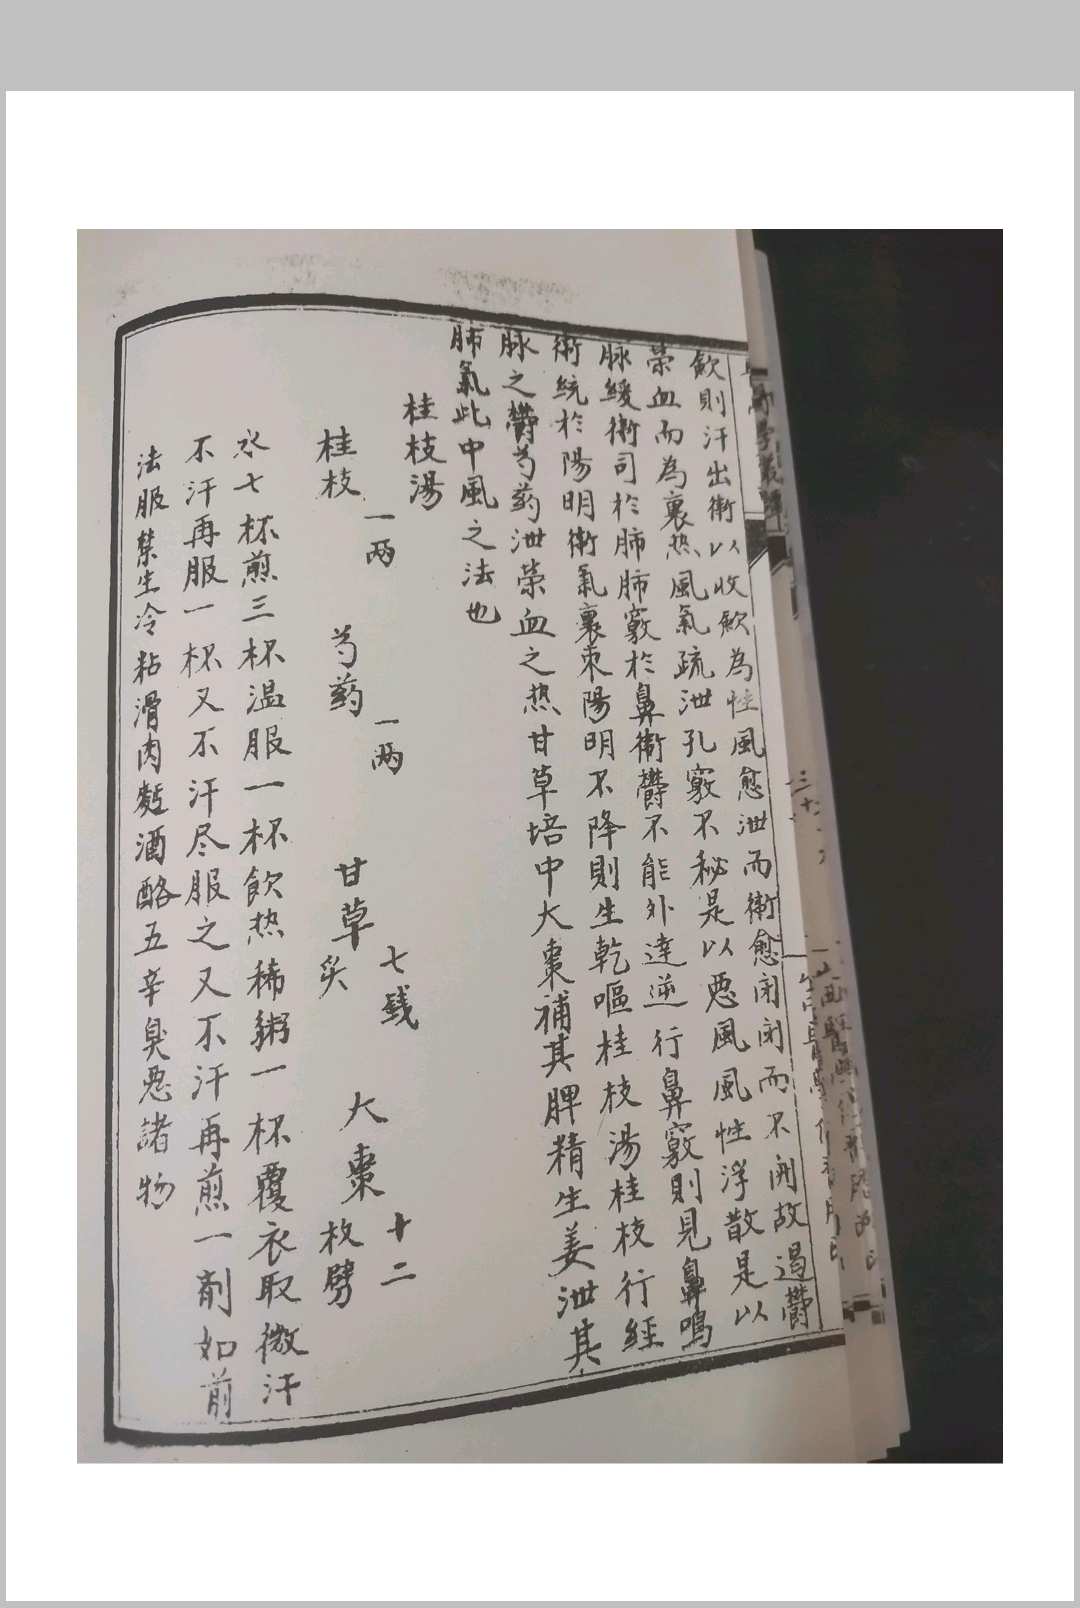 歛則汗出衛以收歛為性風愈泄而衛愈闭闭而不開故遏欝
榮血而為裏热風氣疏泄孔竅不秘是以惡風風性浮散是以
脉緩衛司於肺肺竅於鼻衛欝不能外達逆行鼻竅則見鼻鳴
衛統於陽明衛氣裏束陽明不降則生乾嘔桂枝湯桂枝行經
脉之欝芍药泄榮血之热甘草培中大棗補其脾精生姜泄其
肺氣此中風之法也
桂枝湯
桂枝一两 芍药一两 甘草七銭炙 大棗十二枚劈
水七杯煎三杯温服一杯飲热稀粥一杯覆衣取微汗
不汗再服一杯又不汗尽服之又不汗再煎一剤如前
法服禁生冷粘滑肉麪酒酪五辛臭惡諸物